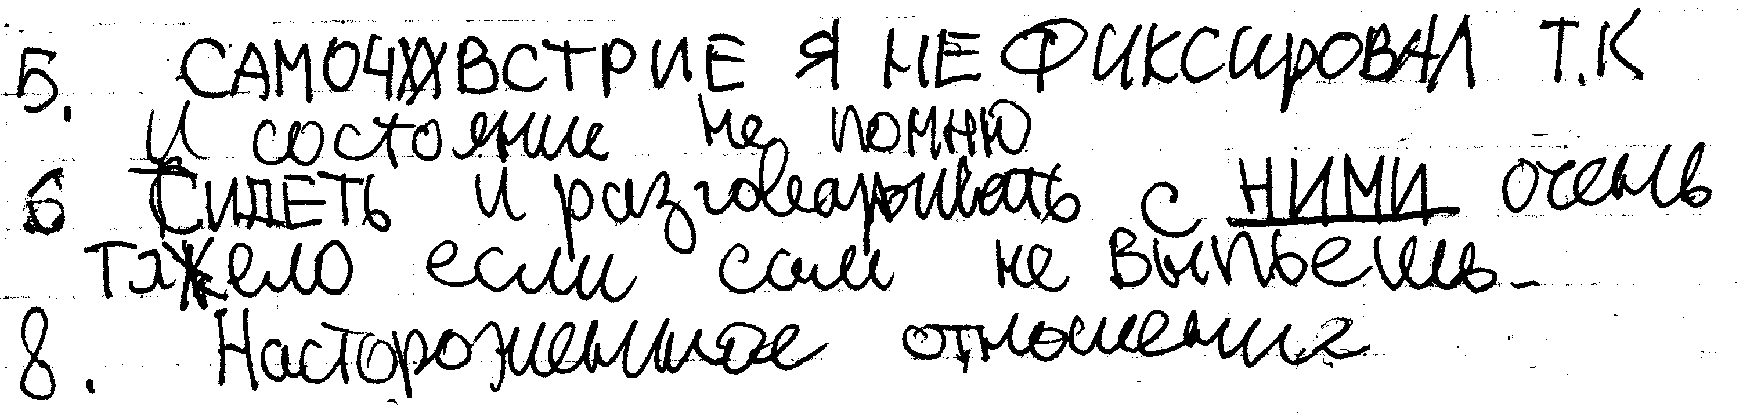 5. САМОЧУВСТРИЕ Я НЕ ФИКСИРОВАЛ Т.К
И состояние не помню
6 СИДЕТЬ и разговаривать с НИМИ очень
тяжело если сам не выпьешь.
8. Настороженное отношение